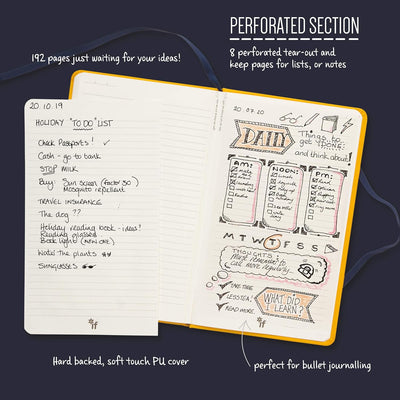 PERFORATED SECTION
192 pages just waiting for your ideas!
8 perforated tear-out and
keep pages for lists, or notes
20.10.19
HOLIDAY "TO DO" LIST
Check Passports! ✓
Cash - go to bank
STOP MILK
Buy: Sun screen (factor 30)
Mosquito repellent
TRAVEL INSURANCE
The dog ??
Holiday reading book - ideas?
Reading glasses
Book light (NEW ONE)
Water the plants
SUNGLASSES
if
20.07.20
DAILY
Things to
get DONE:
and think about!
AM:
NOON:
PM:
M T W T F S S
THOUGHTS:
Must remember to
call more regularly.
✓ TAKE TIME
✓ LESS TEA!
✓ READ MORE
WHAT DID
I LEARN?
if
Hard backed, soft touch PU cover
perfect for bullet journalling